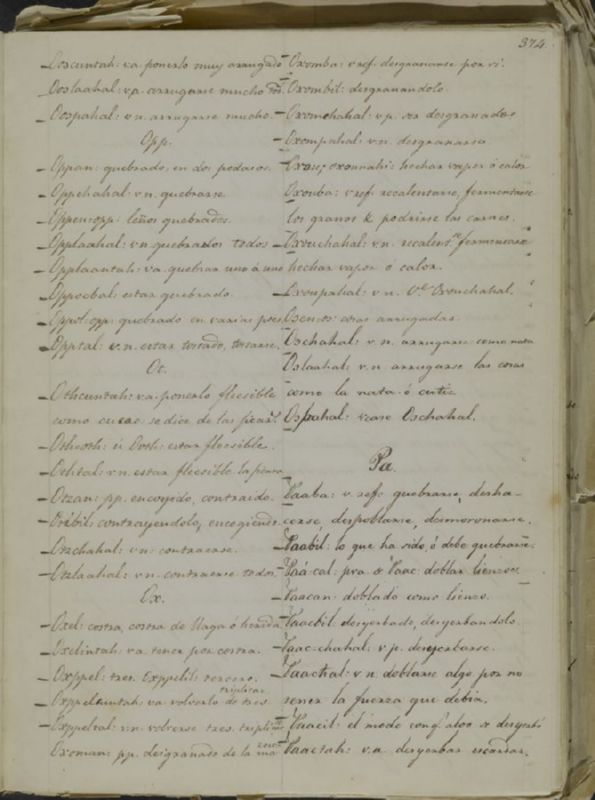 374.
Ooxcuntah: v.a. ponerlo muy arrugado
Ooslaahal: v.p. arrugarse mucho
Oospahal: v.n. arrugarse mucho.
Opp.
Oppan: quebrado, en dos pedasos.
Oppchahal: v.n. quebrarse.
Oppen-opp: leños quebrados.
Opplaahal: v.n. quebrados todos
Opplaantah: v.a. quebrar uno á uno
Oppocbal: estar quebrado.
Oppol-opp: quebrado en varias
Opptal: v.n. estar tostado, tosarse.
Ot.
Othcuntah: v.a. ponerlo flecsible
como cuero: se dice de las
Othcoth: ú Ooth: estar flecsible.
Othtal: v.n. estar flecsible la
Otzan: pp. encoyido, contraido.
Otzbil: contrayendolo, encogiendo
Otzchahal: v.n. contraerse.
Otzlaahal: v.n. contraerse todos.
Ox.
Oxel: costra, costra de llaga ó herida
Oxelintah: v.a. tener por costra.
Oxppel: tres. Oxppelil: tercero.
triplicar
Oxppelcuntah: v.a. volverlo de tres
Oxppeltal: v.n. volverse tres,
Oxoman: pp. desgranado de la
Oxomba: v. ref. desgranarse por si.
Oxombil: desgranandolo.
Oxomchahal: v.p. ser desgranado
Oxompahal: v.n. desgranarse
Oxou, oxounahi: hechar vapor ó calor
Oxouba: v. ref. recalentarse, fermentarse
los granos & podrirse las carnes.
Oxouchahal: v.n. fermentarse
hechar vapor ó calor.
Oxoupahal: v.n. Vé Oxouchahal.
Osen-os: cosas arrugadas.
Oschahal: v.n. arrugarse como nata
Oslaahal: v.n. arrugarse las cosas
como la nata ó cutis
Ospahal: vease Oschahal.
Pa.
Paaba: v. ref. quebrarse, desha-
cerse, despoblarse, desmoronarse.
Paabil: lo que ha sido ó debe quebrarse.
Paá-cal: de Paac: doblar lienzos
Paacan: doblado como lienzo.
Paacbil: desyerbado, desyerbandolo.
Paac-chahal: v.p. desyerbarse.
Paachal: v.n. doblarse algo por no
tener la fuerza que debia.
Paacil: el modo con q. algo se
Paactah: v.a. desyerbar escardar.